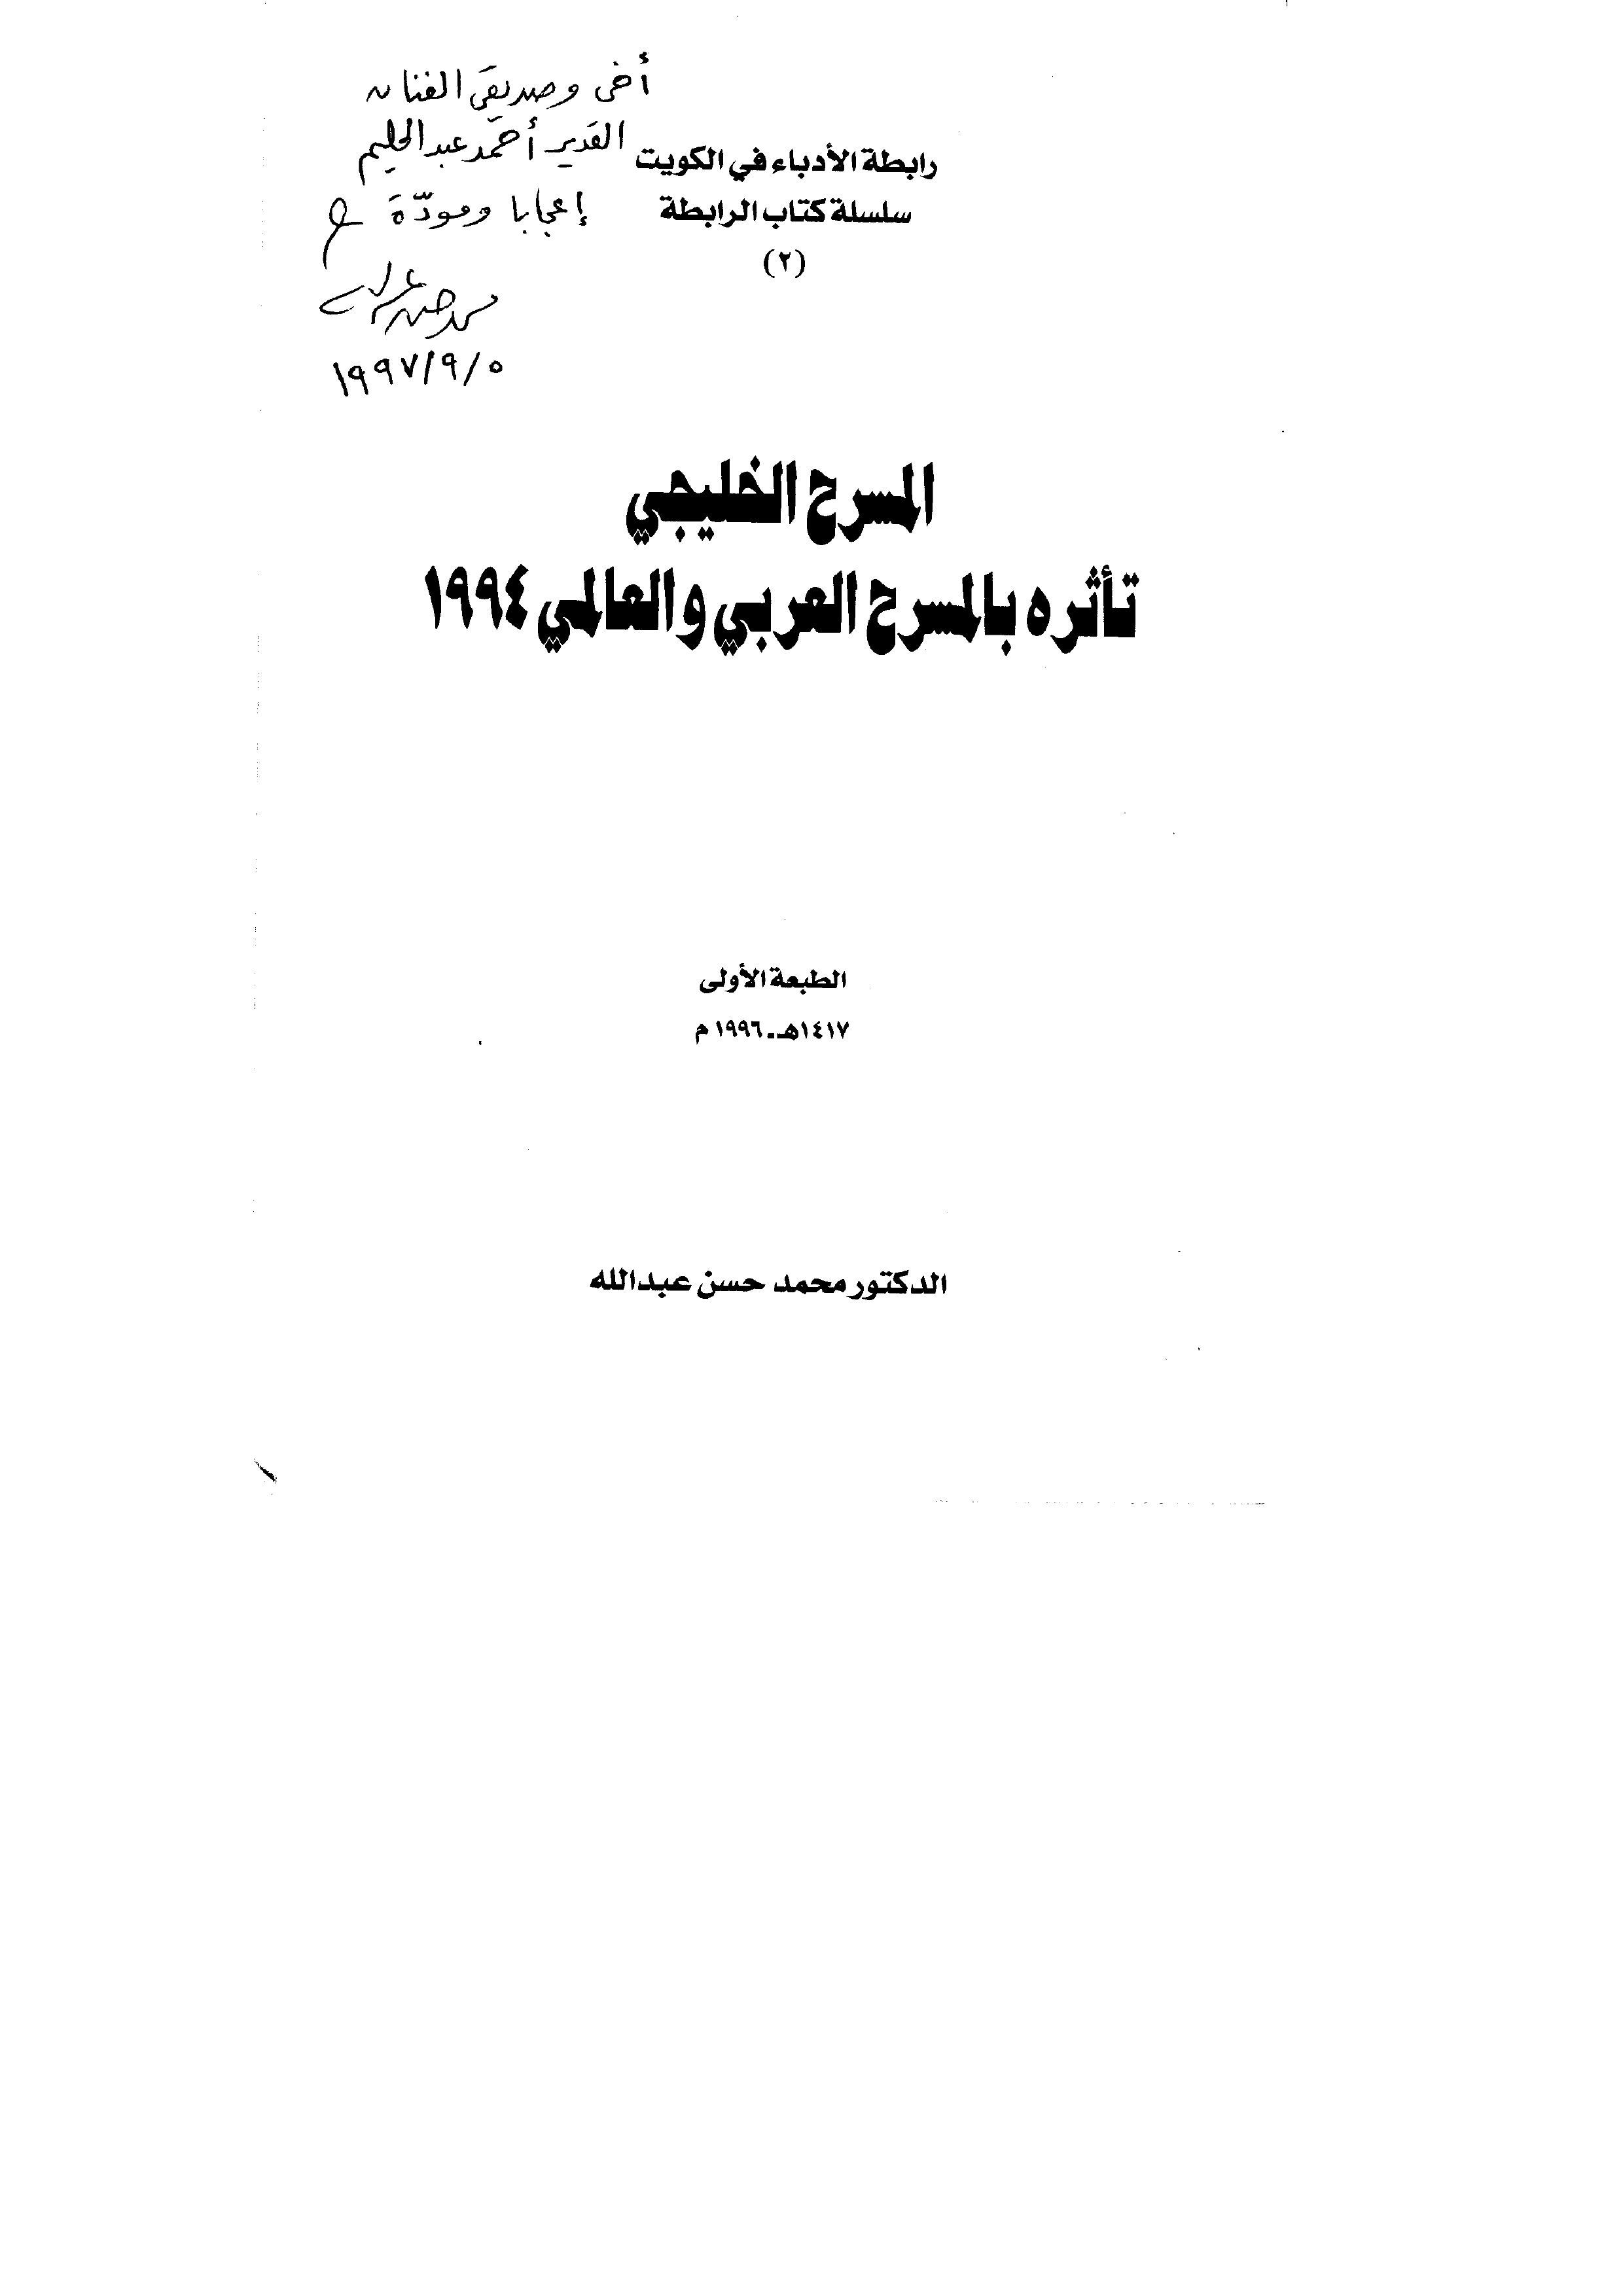 أخى وصديقى الفنان
القدير أحمد عبدالحليم
إعجابا ومودّة
محمد حسن عبدالله
١٩٩٧/٩/٥
رابطة الأدباء في الكويت
سلسلة كتاب الرابطة
(٢)
المسرح الخليجي
تأثره بالمسرح العربي والعالمي ١٩٩٤
الطبعة الأولى
١٤١٧هـ - ١٩٩٦ م
الدكتور محمد حسن عبدالله